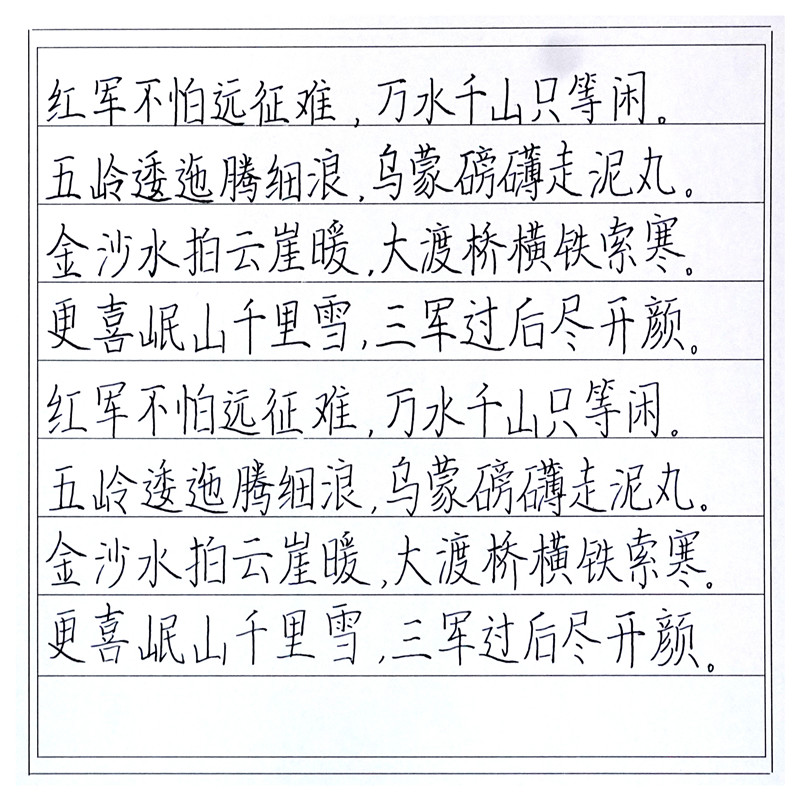 红军不怕远征难，万水千山只等闲。
五岭逶迤腾细浪，乌蒙磅礴走泥丸。
金沙水拍云崖暖，大渡桥横铁索寒。
更喜岷山千里雪，三军过后尽开颜。
红军不怕远征难，万水千山只等闲。
五岭逶迤腾细浪，乌蒙磅礴走泥丸。
金沙水拍云崖暖，大渡桥横铁索寒。
更喜岷山千里雪，三军过后尽开颜。